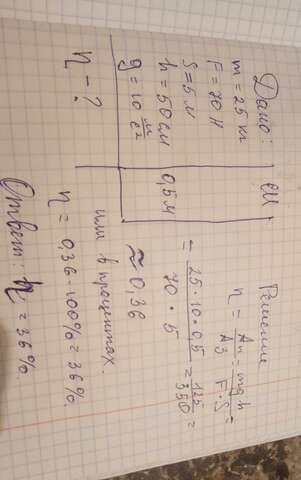 Дано:
m = 25 кг
F = 70 Н
S = 5 м
h = 50 см
g = 10 м/с²
η - ?
СИ
0,5 м
Решение
η = Aп/Aз = mgh/F·S =
= 25·10·0,5/70·5 = 125/350 =
≈ 0,36
или в процентах:
η = 0,36·100% = 36%.
Ответ: η = 36%.